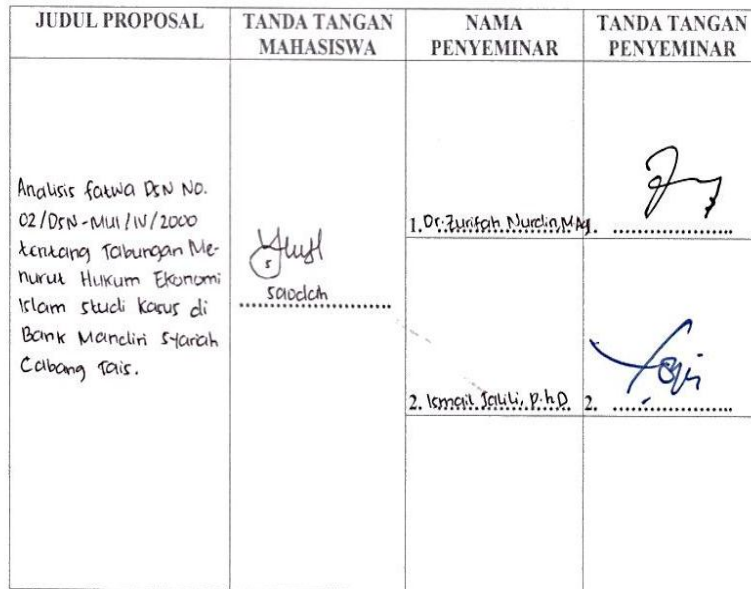 JUDUL PROPOSAL
TANDA TANGAN
MAHASISWA
NAMA
PENYEMINAR
TANDA TANGAN
PENYEMINAR
Analisis fatwa DSN NO.
02/DSN-MUI/IV/2000
tentang Tabungan Me-
nurut Hukum Ekonomi
Islam studi kasus di
Bank Mandiri Syariah
Cabang Tais.
saodah
1. Dr. Zurifah Nurdin, M.Ag
1.
2. Ismail Jalili, p.hD
2.